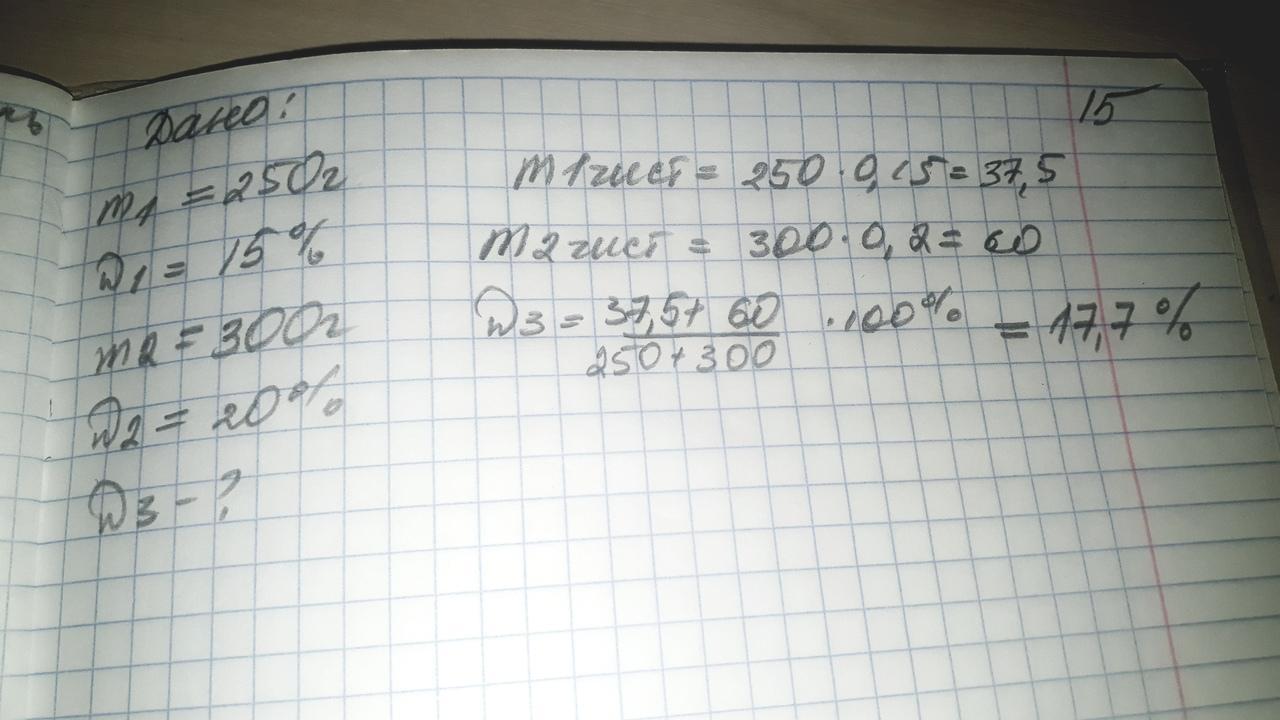 15
Дано:
m1 = 250г
ω1 = 15%
m2 = 300г
ω2 = 20%
ω3 - ?
m1чист = 250 · 0,15 = 37,5
m2чист = 300 · 0,2 = 60
ω3 = 37,5 + 60 / 250 + 300 · 100% = 17,7%